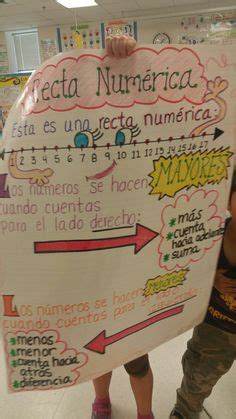 Recta Numérica
Esta es una recta numérica:
1 2 3 4 5 6 7 8 9 10 11 12 13 14 15 16 17
MAYORES
Los números se hacen
cuando cuentas
para el lado derecho:
*más
*cuenta
hacia adelante
*suma
Los números se hacen
cuando cuentas para el lado
*menos
*menor
*cuenta hacia
atrás
*diferencia